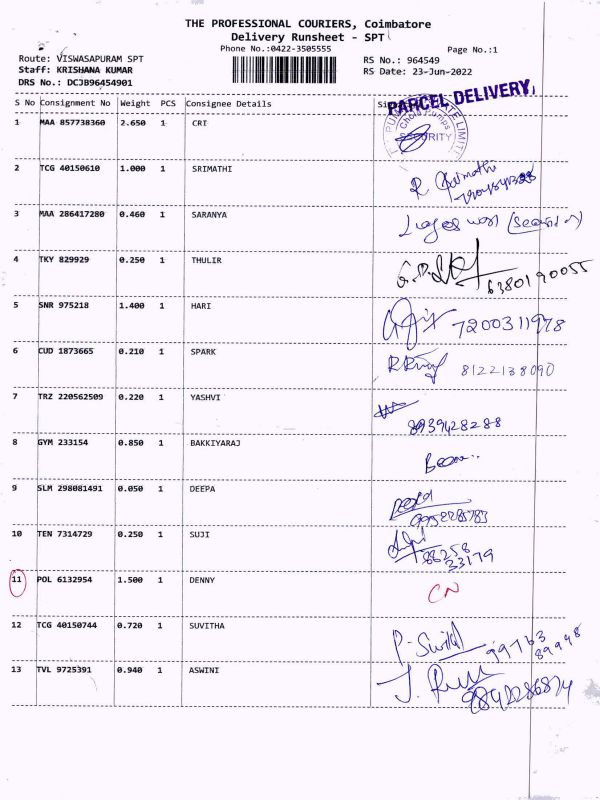 THE PROFESSIONAL COURIERS, Coimbatore
Delivery Runsheet - SPT
Phone No.:0422-3505555
Page No.:1
Route: VISWASAPURAM SPT
RS No.: 964549
Staff: KRISHANA KUMAR
RS Date: 23-Jun-2022
DRS No.: DCJB96454901
S No Consignment No Weight PCS Consignee Details
PARCEL DELIVERY
1 MAA 857738360 2.650 1 CRI
Chola Pumps
SECURITY
2 TCG 40150610 1.000 1 SRIMATHI
R. Srimathi
3 MAA 286417280 0.460 1 SARANYA
4 TKY 829929 0.250 1 THULIR
6380190055
5 SNR 975218 1.400 1 HARI
7200311978
6 CUD 1873665 0.210 1 SPARK
8122138090
7 TRZ 220562509 0.220 1 YASHVI
8939428288
8 GYM 233154 0.850 1 BAKKIYARAJ
9 SLM 298081491 0.050 1 DEEPA
Deepa
10 TEN 7314729 0.250 1 SUJI
88258
33179
11 POL 6132954 1.500 1 DENNY
CN
12 TCG 40150744 0.720 1 SUVITHA
99763
89948
13 TVL 9725391 0.940 1 ASWINI